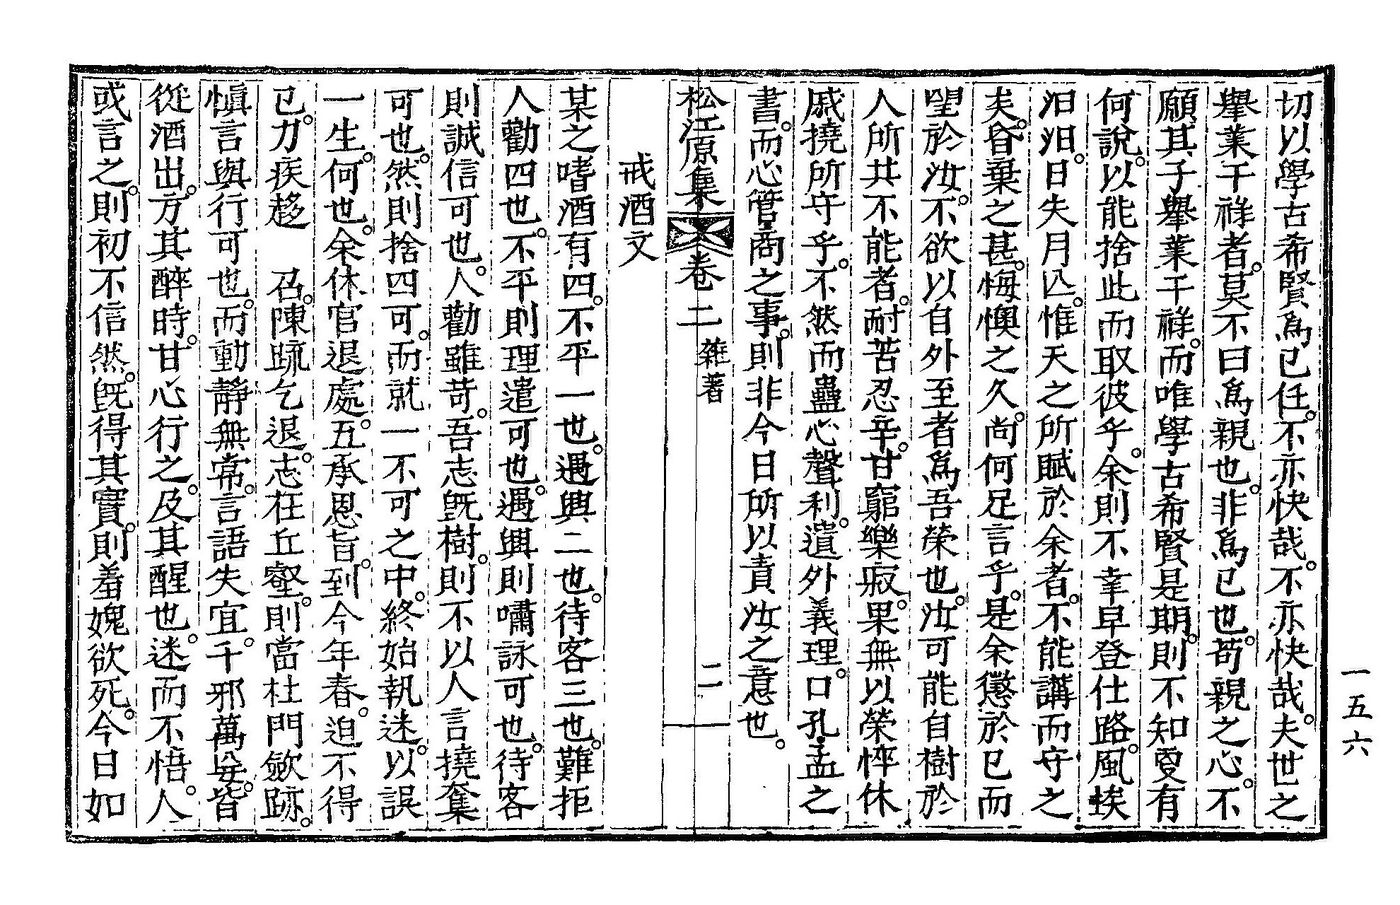 切以學古希賢爲已任。不亦快哉。不亦快哉。夫世之
擧業干祿者。莫不曰爲親也。非爲已也。苟親之心。不
願其子擧業干祿。而唯學古希賢是期。則不知更有
何說。以能捨此而取彼乎。余則不幸早登仕路。風埃
汨汨。日失月亾。惟天之所賦於余者。不能講而守之
矣。暴棄之甚。悔懊之久。尚何足言乎。是余懲於已而
望於汝。不欲以自外至者爲吾榮也。汝可能自樹於
人所共不能者。耐苦忍辛。甘窮樂寂。果無以榮悴休
戚撓所守乎。不然而蠱心聲利。遺外義理。口孔孟之
書。而心管商之事。則非今日所以責汝之意也。
松江原集 卷二 雜著 二
戒酒文
某之嗜酒有四。不平一也。遇興二也。待客三也。難拒
人勸四也。不平則理遣可也。遇興則嘯詠可也。待客
則誠信可也。人勸雖苛。吾志旣樹。則不以人言撓奪
可也。然則捨四可。而就一不可之中。終始執迷。以誤
一生。何也。余休官退處。五承恩旨。到今年春。迫不得
已。力疾趍 召。陳疏乞退。志在丘壑。則當杜門歛跡。
愼言與行可也。而動靜無常。言語失宜。千邪萬妄。皆
從酒出。方其醉時。甘心行之。及其醒也。迷而不悟。人
或言之。則初不信然。旣得其實。則羞媿欲死。今日如
一五六